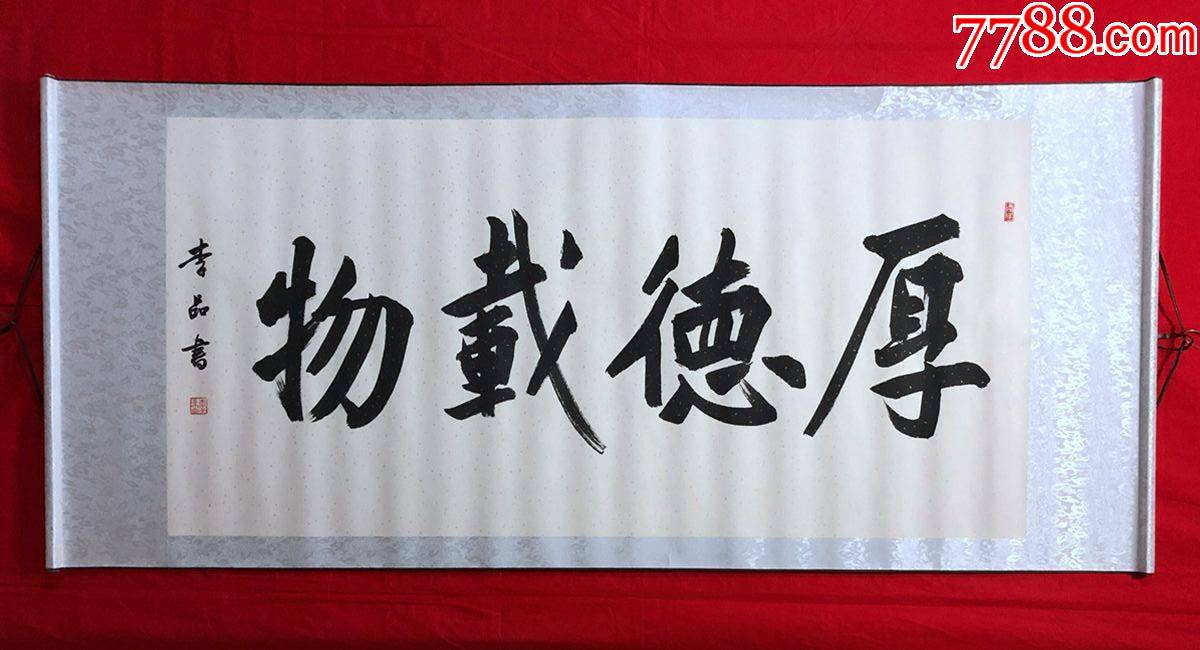 7788.com
厚德載物
李品書